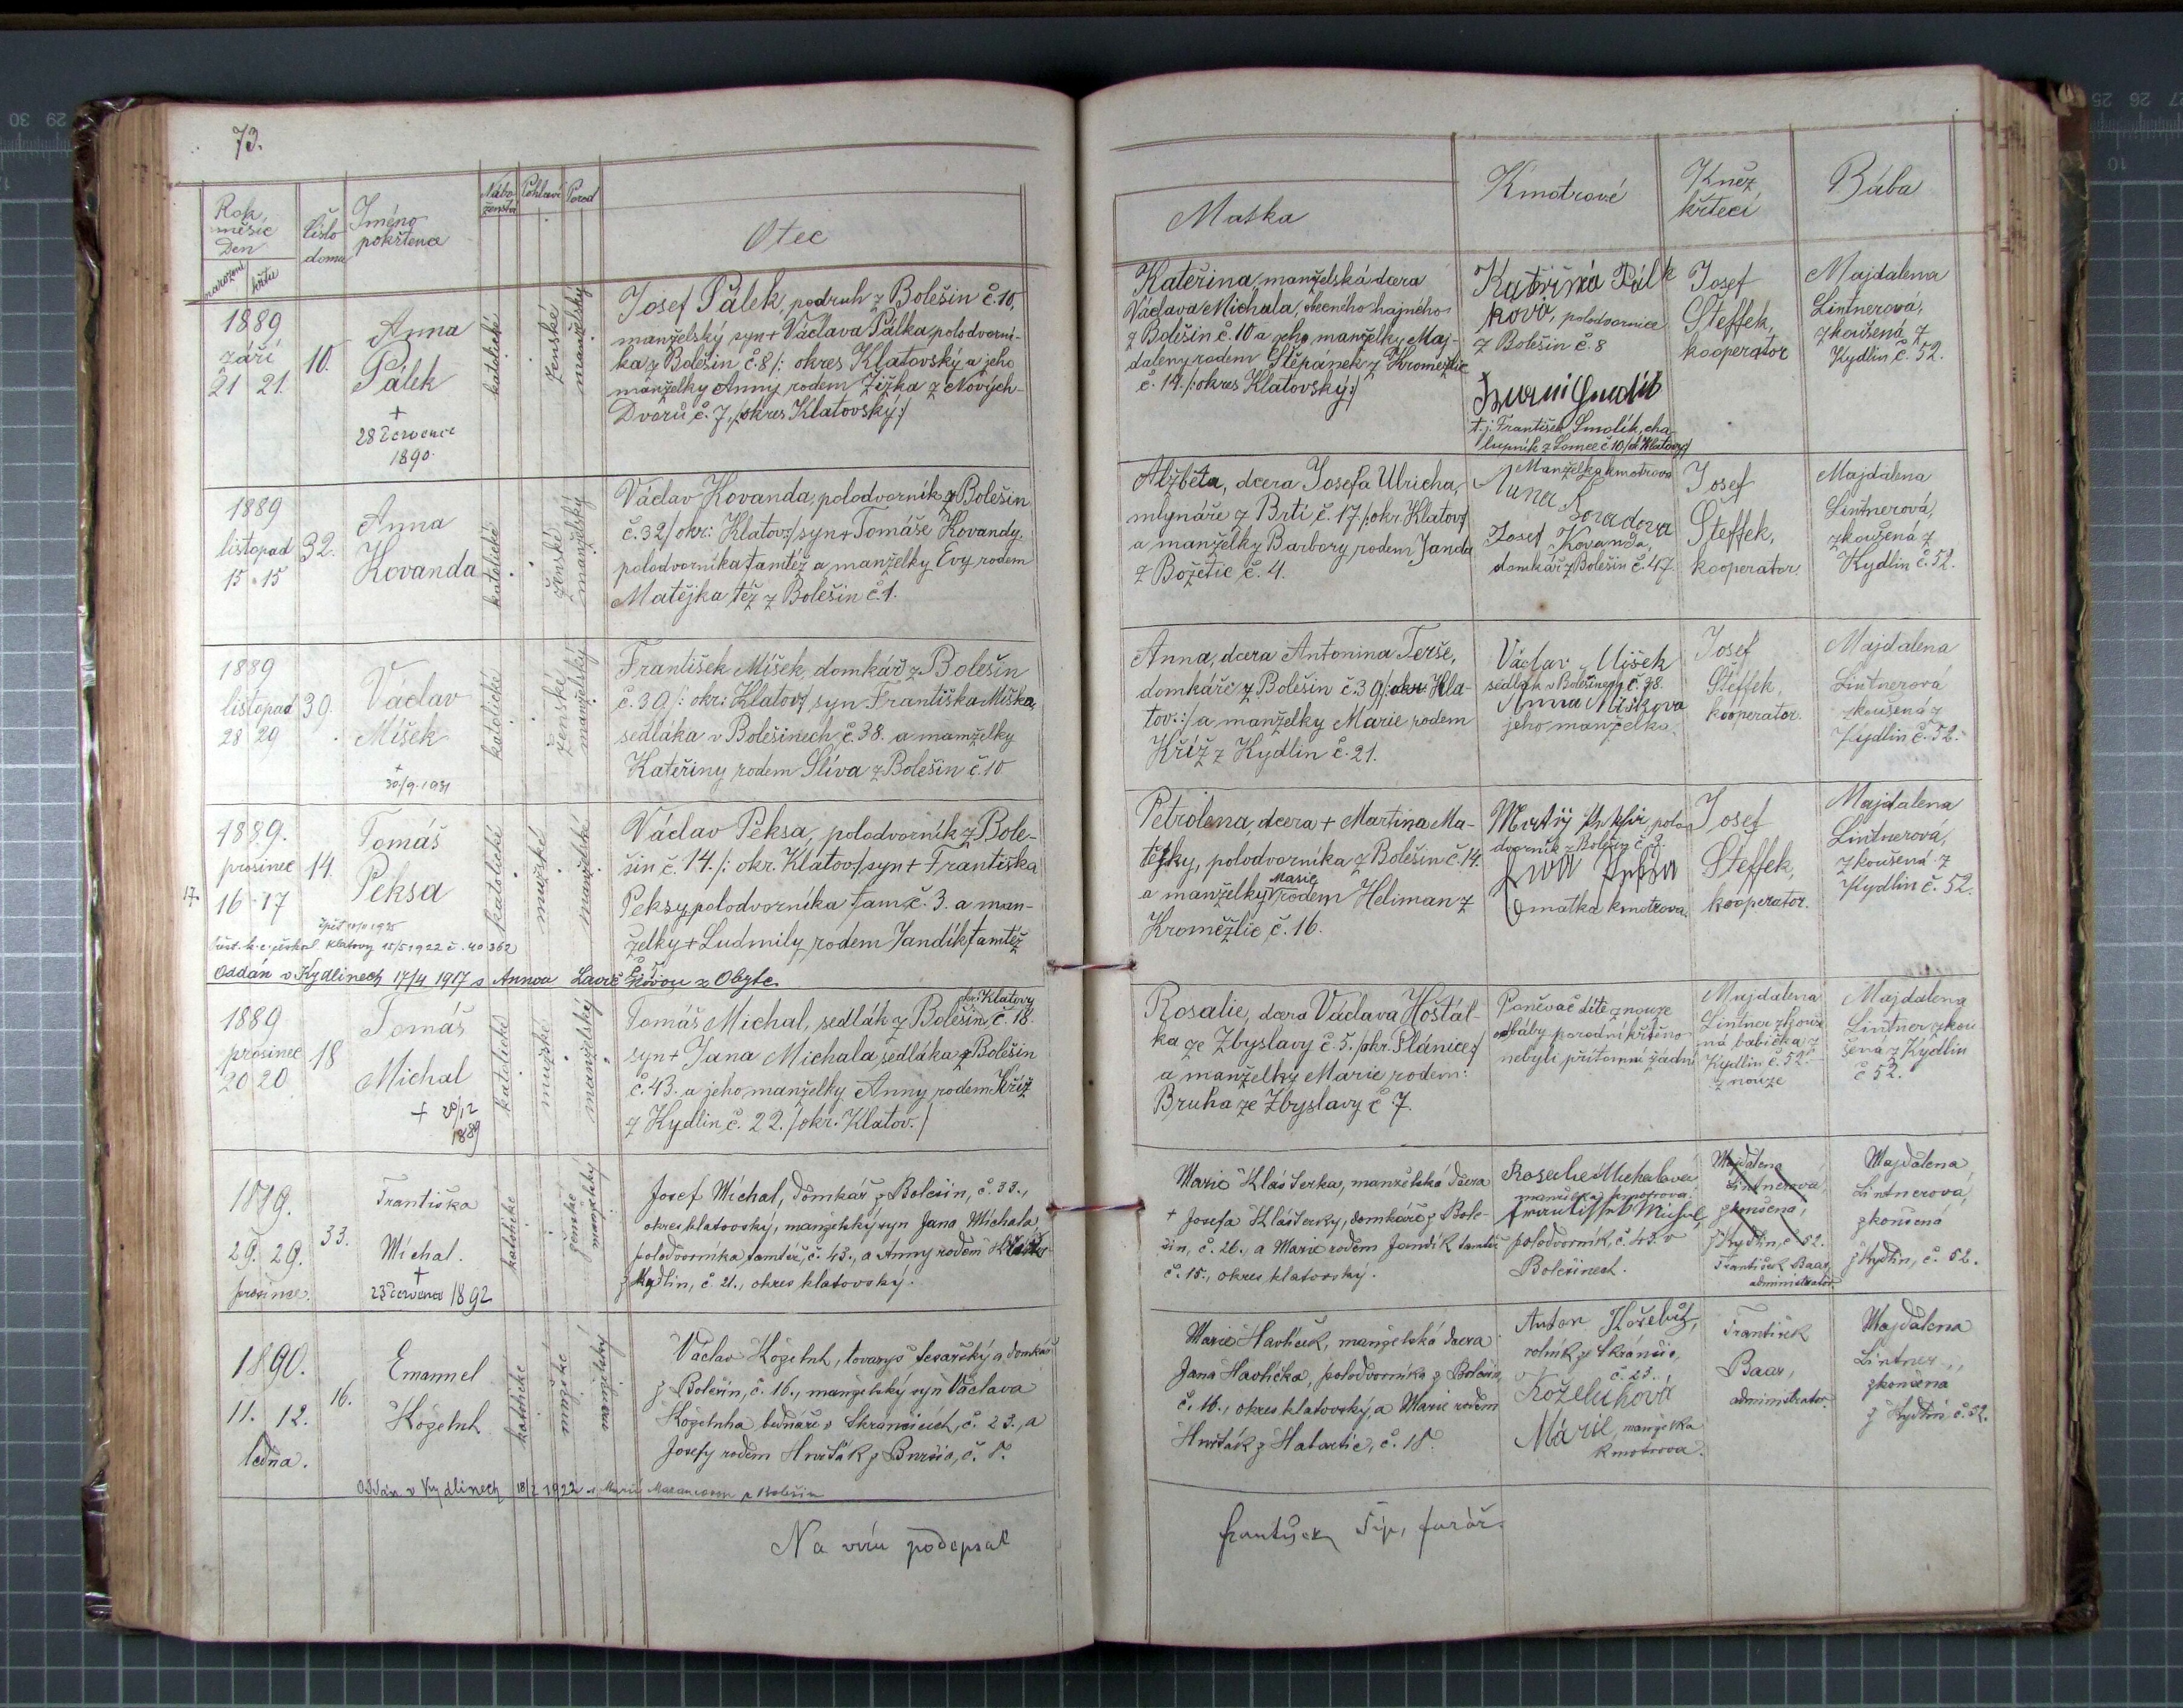 73.
Rok, měsíc Den
narození křtu
Číslo domu
Jméno pokřtence
Náboženství
Pohlaví
Porod
Otec
Matka
Kmotrové
Kněz křtící
Bába
1889
září
21 21.
10.
Anna
Pálek
+
28 července
1890.
katolické
ženské
manželský
Josef Pálek, podruh z Bolešin č. 10,
manželský syn + Václava Pálka polodvorní-
ka z Bolešin č. 8 /: okres Klatovský a jeho
manželky Anny rodem Žižka z Nových-
Dvorů č. 7, /okres Klatovský:/
Kateřina, manželská dcera
Václava Michala, obecného hajného
z Bolešin č. 10 a jeho manželky Maj-
daleny rodem Štěpánek z Kroměždic
č. 14. /: okres Klatovský:/
Kateřina Pálk
ková, polodvornice
z Bolešin č. 8
t. j. František Smolík, cha-
lupník z Lomce č. 10 /ok Klatovy/
Josef
Šteffek,
kooperator
Majdalena
Lintnerová,
zkoušená z
Kydlin č. 52.
1889
listopad
15. 15
32.
Anna
Kovanda
katolické
ženské
manželský
Václav Kovanda, polodvorník z Bolešin
č. 32 / okr: Klatov:/ syn + Tomáše Kovandy,
polodvorníka tamtéž a manželky Evy, rodem
Matějka, též z Bolešin č. 1.
Alžběta, dcera Josefa Ulricha,
mlynáře z Brti č. 17 /: okr. Klatov:/
a manželky Barbory, rodem Janda
z Božetic č. 4.
Manželka kmotrova
Josef Kovanda,
domkář z Bolešin č. 47.
Josef
Šteffek,
kooperator.
Majdalena
Lintnerová,
zkoušená z
Kydlin č. 52.
1889
listopad
28 29
30.
Václav
Míšek
+
30/9. 1931
katolické
ženské
manželský
František Míšek, domkář z Bolešin
č. 30 /: okr: Klatov:/ syn Františka Míška,
sedláka v Bolešinech č. 38. a manželky
Kateřiny rodem Slíva z Bolešin č. 10
Anna, dcera Antonina Terše,
domkáře z Bolešin č. 30 /: okr: Kla-
tov::/ a manželky Marie rodem
Kříž z Kydlin č. 21.
Václav Míšek
sedlák v Bolešinech č. 38.
Anna Míškova
jeho manželka.
Josef
Šteffek,
kooperator.
Majdalena
Lintnerová
zkoušená z
Kydlin č. 52.
1889.
prosinec
16 - 17
17.
14.
Tomáš
Peksa
katolické
mužské
manželské
Václav Peksa, polodvorník z Bole-
šin č. 14. /: okr. Klatov:/ syn + Františka
Peksy, polodvorníka tam č. 3. a man-
želky + Ludmily, rodem Jandík, tamtéž
Petrolena, dcera + Martina Ma-
tějky, polodvorníka z Bolešin č. 14.
a manželky Marie rodem Heliman z
Kroměždic č. 16.
dvorník z Bolešin č. 3.
matka kmotrova.
Josef
Šteffek,
kooperator.
Majdalena
Lintnerová,
zkoušená z
Kydlin č. 52.
Klatovy 15/5 1922 č. 40362
Oddán v Kydlinech 17/4 1917 s Annou
z Obytc.
1889
prosinec
20 20
18
Tomáš
Michal
+ 20/12
1889
katolické
mužské
manželský
Tomáš Michal, sedlák z Bolešin č. 18. okr: Klatovy
syn + Jana Michala, sedláka z Bolešin
č. 43. a jeho manželky Anny, rodem Kříž
z Kydlin č. 22. /okr. Klatov./
Rosalie, dcera Václava Hoštál-
ka ze Zbyslavy č. 5. /okr. Plánice:/
a manželky Marie rodem:
Bruha ze Zbyslavy č. 7.
Poněvač dítě z nouze
od báby porodní křtěno
nebyli přítomni žádní
Majdalena
Lintner zkouše
ná babička z
Kydlin č. 52
z nouze
Majdalena
Lintner zkou
šená z Kydlin
č 52.
1889.
29. 29.
prosince.
33.
Františka
Michal.
+
23 července 1892
katolické
ženské
manželský
Josef Michal, domkář z Bolešin, č. 33.,
okres klatovský, manželský syn Jana Michala
polodvorníka tamtéž, č. 43., a Anny rodem
z Kydlin, č. 21., okres klatovský.
Marie Klášterka, manželská dcera
+ Josefa Klášterky, domkáře z Bole-
šin, č. 26., a Marie rodem Jandík tamtéž
č. 15., okres klatovský.
Rosalie Michalová
manželka kmotrova.
polodvorník, č. 43. v
Bolešinech.
Majdalena
Lintnerová,
zkoušená,
z Kydlin, č 52.
František Baar,
administrátor.
Majdalena
Lintnerová,
zkoušená
z Kydlin, č. 52.
1890.
11. 12.
ledna.
16.
Emanuel
Koželuh
katolické
mužské
manželský
Václav Koželuh, tovaryš tesařský a domkář
z Bolešin, č. 16., manželský syn Václava
Koželuha bednáře v Skránčicích, č. 23., a
Josefy rodem
Marie Havlíček, manželská dcera
Jana Havlíčka, polodvorníka z Bolešin,
č. 16., okres klatovský, a Marie rodem
Anton Koželuh,
rolník z Skránčic,
č. 23.
Koželuhová
Marie, manželka
kmotrova.
František
Baar,
administrátor.
Majdalena
Lintner,
zkoušená
z Kydlin, č. 52.
Oddán v Kydlinech 1922 s Marií z Bolešin
Na víru podepsal
František Šíp, farář.